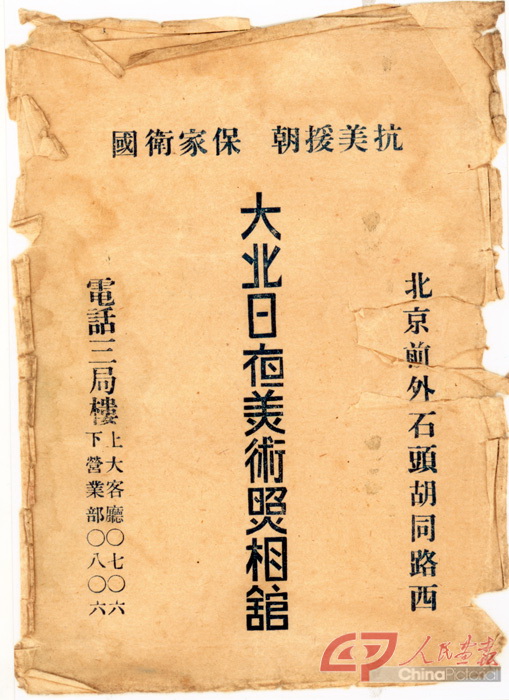 抗美援朝 保家衛國
北京前外石頭胡同路西
大北日夜美術照相舘
電話三局樓
上大客廳〇七〇六
下營業部〇八〇六
人民画报
ChinaPictorial